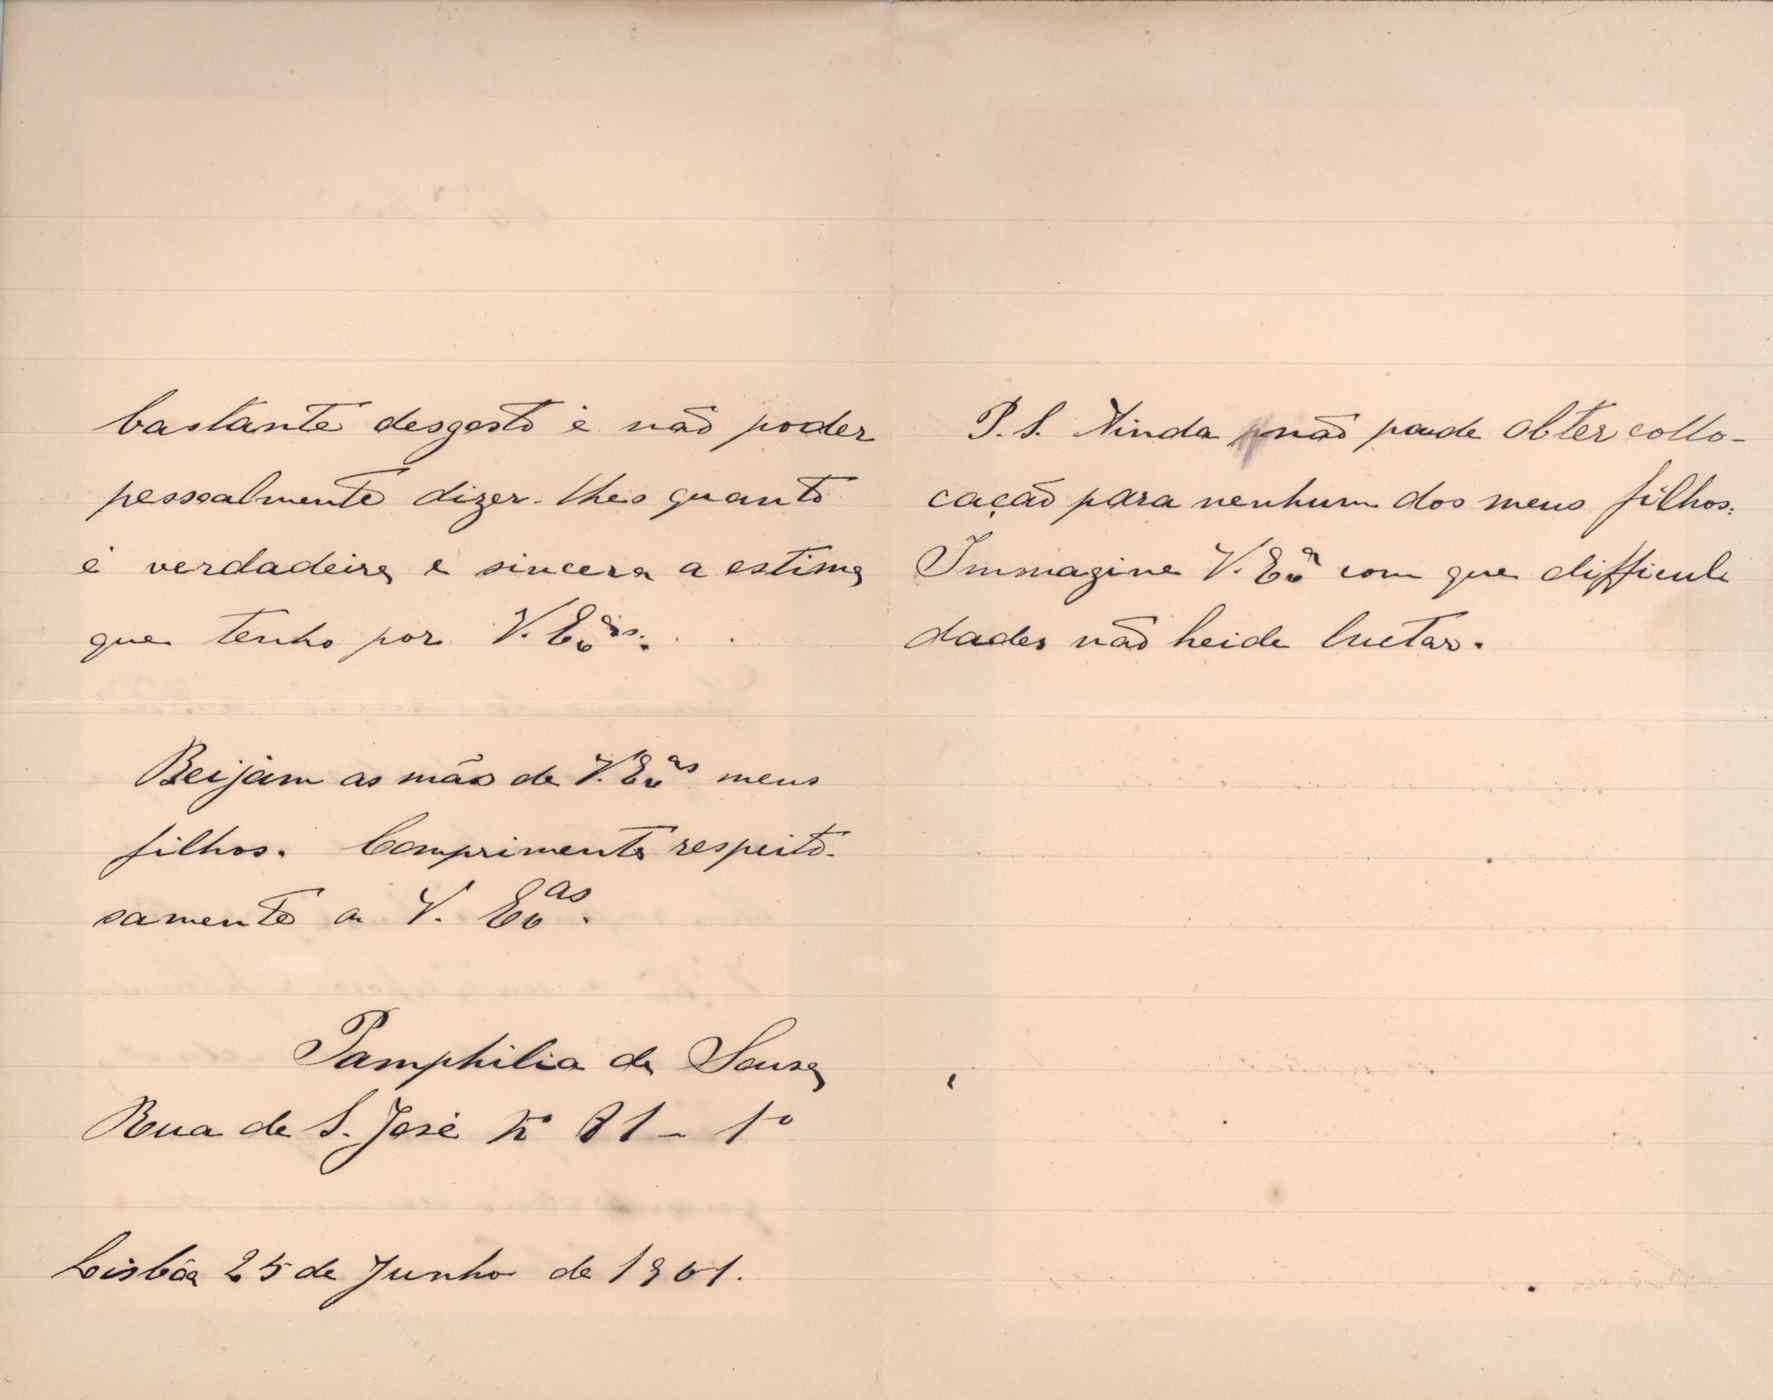 bastante desgosto é não poder
pessoalmente dizer-lhes quanto
é verdadeira e sincera a estima
que tenho por V. Ex.ªs.
Beijam as mãos de V. Ex.as meus
filhos. Comprimenta respeito-
samente a V. Ex.as.
Pamphilia de Sousa
Rua de S. José Nº 81 – 1º
Lisbôa 25 de Junho de 1901.
P.S. Ainda não poude obter collo-
cação para nenhum dos meus filhos.
Immagine V. Ex.ª com que difficul
dades não heide luctar.